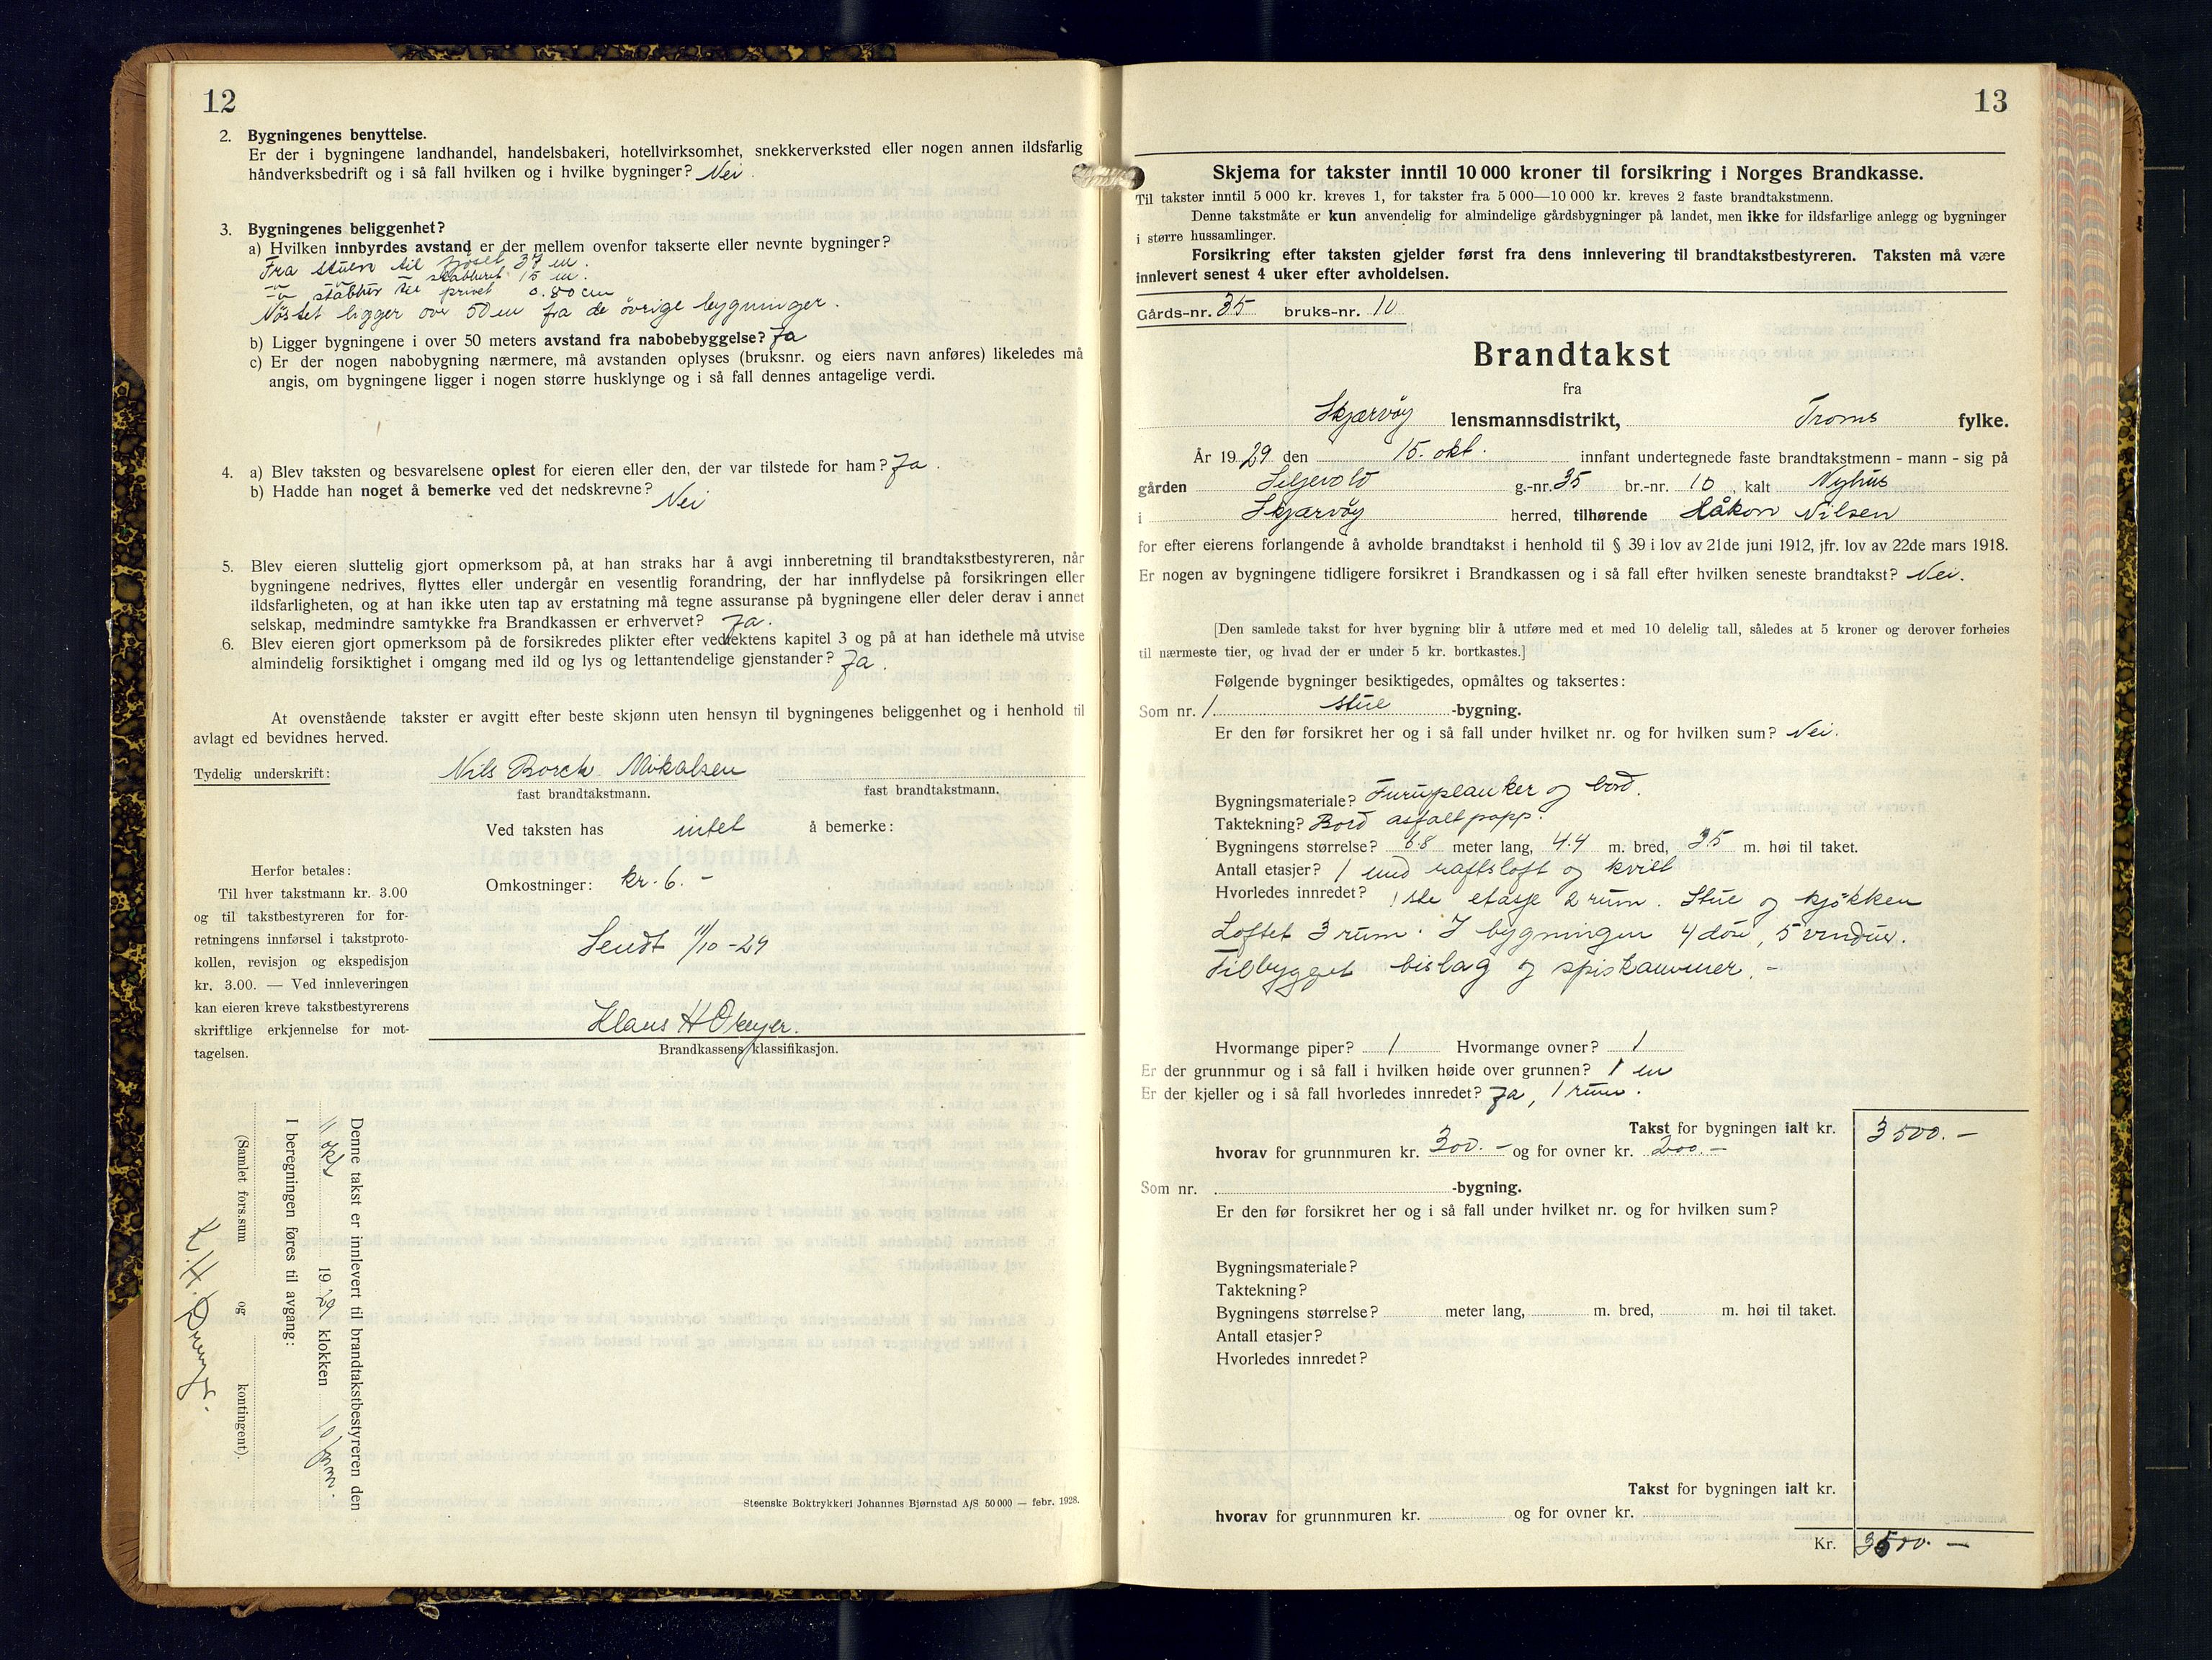 12
2. Bygningenes benyttelse.
Er der i bygningene landhandel, handelsbakeri, hotellvirksomhet, snekkerverksted eller nogen annen ildsfarlig
håndverksbedrift og i så fall hvilken og i hvilke bygninger? Nei.
3. Bygningenes beliggenhet?
a) Hvilken innbyrdes avstand er der mellem ovenfor takserte eller nevnte bygninger?
Fra stuen til fjöset 37 m.
-"- -"- stabburet 15 m.
-"- stabbur til privet 0.80 cm
Nöstet ligger over 50 m fra de övrige bygninger.
b) Ligger bygningene i over 50 meters avstand fra nabobebyggelse? Ja
c) Er der nogen nabobygning nærmere, må avstanden oplyses (bruksnr. og eiers navn anføres) likeledes må
angis, om bygningene ligger i nogen større husklynge og i så fall dennes antagelige verdi.
4. a) Blev taksten og besvarelsene oplest for eieren eller den, der var tilstede for ham? Ja.
b) Hadde han noget å bemerke ved det nedskrevne? Nei
5. Blev eieren sluttelig gjort opmerksom på, at han straks har å avgi innberetning til brandtakstbestyreren, når
bygningene nedrives, flyttes eller undergår en vesentlig forandring, der har innflydelse på forsikringen eller
ildsfarligheten, og at han ikke uten tap av erstatning må tegne assuranse på bygningene eller deler derav i annet
selskap, medmindre samtykke fra Brandkassen er erhvervet? Ja.
6. Blev eieren gjort opmerksom på de forsikredes plikter efter vedtektens kapitel 3 og på at han idethele må utvise
almindelig forsiktighet i omgang med ild og lys og lettantendelige gjenstander? Ja.
At ovenstående takster er avgitt efter beste skjønn uten hensyn til bygningenes beliggenhet og i henhold til
avlagt ed bevidnes herved.
Tydelig underskrift: Nils Borch Mikalsen
fast brandtakstmann. fast brandtakstmann.
Ved taksten has intet å bemerke:
Omkostninger: kr. 6.-
Sendt 11/10-29
Klaus H
Brandkassens klassifikasjon.
Herfor betales:
Til hver takstmann kr. 3.00
og til takstbestyreren for for-
retningens innførsel i takstproto-
kollen, revisjon og ekspedisjon
kr. 3.00. — Ved innleveringen
kan eieren kreve takstbestyrerens
skriftlige erkjennelse for mot-
tagelsen.
Denne takst er innlevert til brandtakstbestyreren den
11 okt 1929 klokken 10 fm.
I beregningen føres til avgang:
(Samlet fors.sum og kontingent).
K. H.
Steenske Boktrykkeri Johannes Bjørnstad A/S 50 000 — febr. 1928.
13
Skjema for takster inntil 10 000 kroner til forsikring i Norges Brandkasse.
Til takster inntil 5 000 kr. kreves 1, for takster fra 5 000—10 000 kr. kreves 2 faste brandtakstmenn.
Denne takstmåte er kun anvendelig for almindelige gårdsbygninger på landet, men ikke for ildsfarlige anlegg og bygninger
i større hussamlinger.
Forsikring efter taksten gjelder først fra dens innlevering til brandtakstbestyreren. Taksten må være
innlevert senest 4 uker efter avholdelsen.
Gårds-nr. 35 bruks-nr. 10
Brandtakst
fra
Skjærvöy lensmannsdistrikt, Troms fylke.
År 1929 den 15. okt. innfant undertegnede faste brandtakstmenn - mann - sig på
gården Seljevold g.-nr. 35 br.-nr. 10, kalt Nyhus
i Skjærvöy herred, tilhørende Håkon Nilsen
for efter eierens forlangende å avholde brandtakst i henhold til § 39 i lov av 21de juni 1912, jfr. lov av 22de mars 1918.
Er nogen av bygningene tidligere forsikret i Brandkassen og i så fall efter hvilken seneste brandtakst? Nei.
[Den samlede takst for hver bygning blir å utføre med et med 10 delelig tall, således at 5 kroner og derover forhøies
til nærmeste tier, og hvad der er under 5 kr. bortkastes.]
Følgende bygninger besiktigedes, opmåltes og taksertes:
Som nr. 1 stue -bygning.
Er den før forsikret her og i så fall under hvilket nr. og for hvilken sum? Nei.
Bygningsmateriale? Furuplanker og bord.
Taktekning? Bord asfaltpapp.
Bygningens størrelse? 6.8 meter lang, 4.4 m. bred, 35 m. høi til taket.
Antall etasjer? 1 med raftsloft og kvist
Hvorledes innredet? 1ste etasje 2 rum. Stue og kjökken
Loftet 3 rum. I bygningen 4 dör, 5 vinduer.
Tilbygget bislag og spiskammer.-
Hvormange piper? 1 Hvormange ovner? 1
Er der grunnmur og i så fall i hvilken høide over grunnen? 1 m
Er der kjeller og i så fall hvorledes innredet? Ja, 1 rum.
Takst for bygningen ialt kr. 3500.-
hvorav for grunnmuren kr. 300.- og for ovner kr. 200.-
Som nr. -bygning.
Er den før forsikret her og i så fall under hvilket nr. og for hvilken sum?
Bygningsmateriale?
Taktekning?
Bygningens størrelse? meter lang, m. bred, m. høi til taket.
Antall etasjer?
Hvorledes innredet?
Takst for bygningen ialt kr.
hvorav for grunnmuren kr. og for ovner kr.
Kr. 3500.-